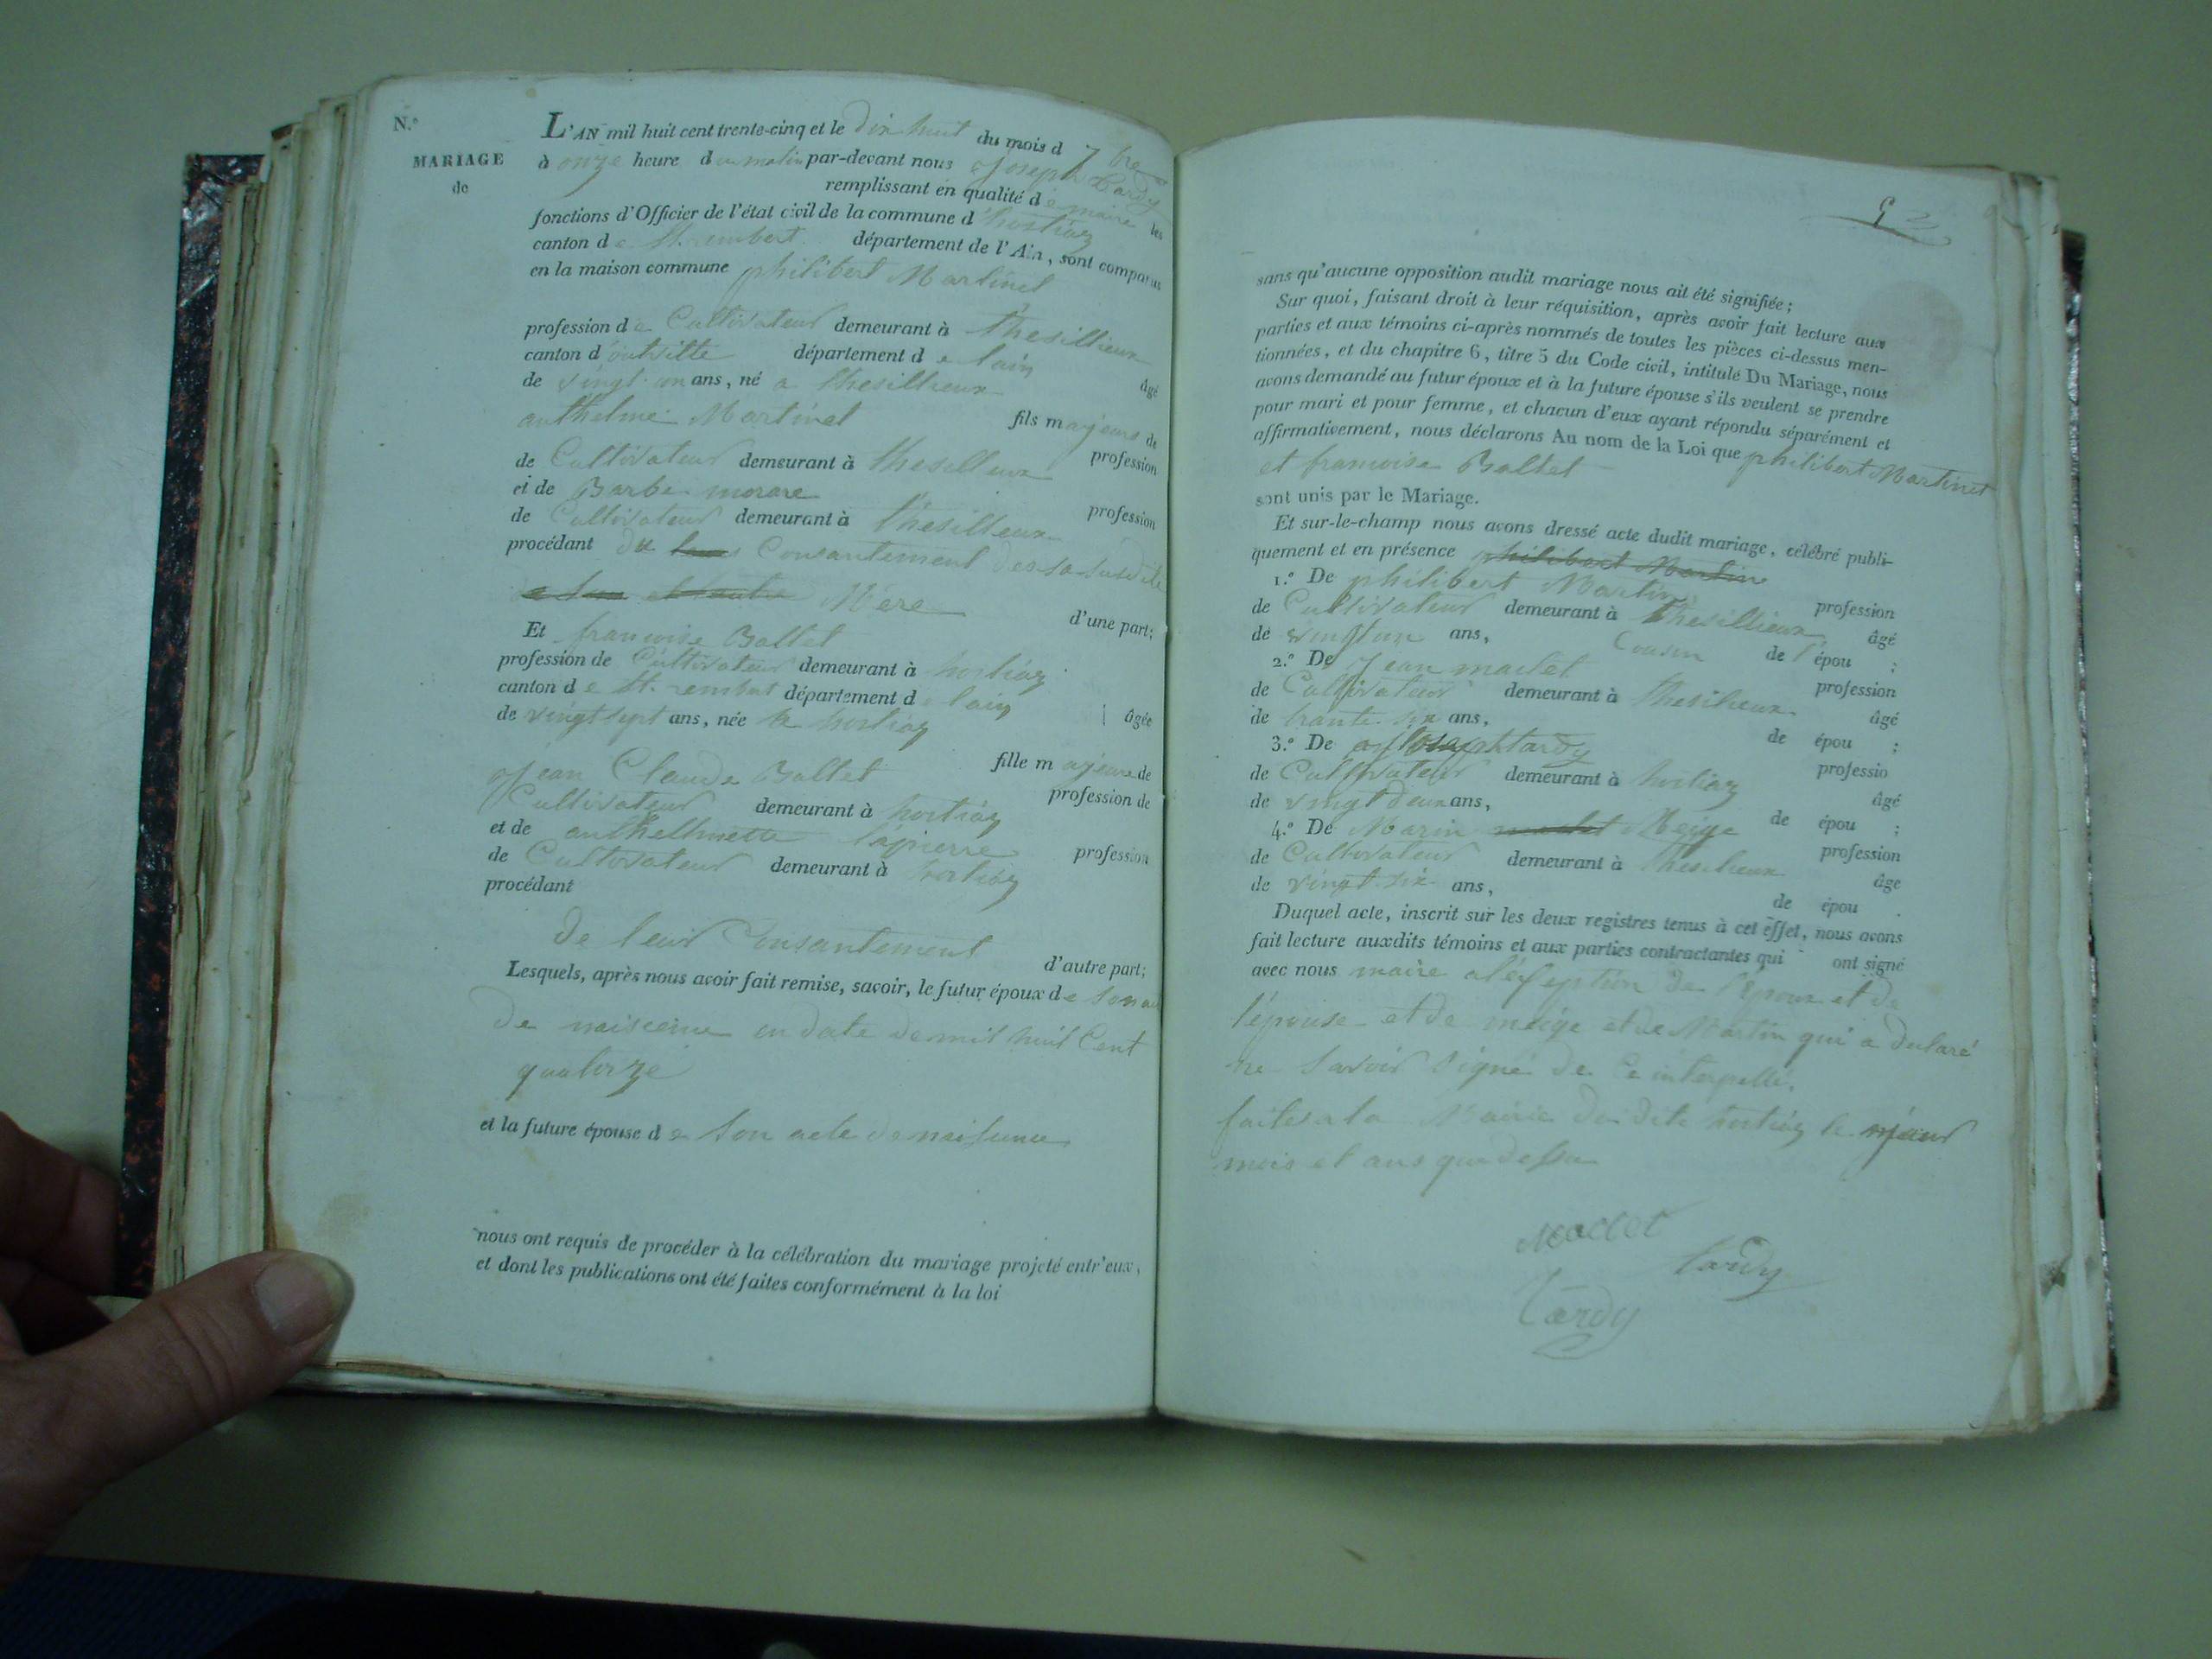 N.º
MARIAGE
de
L'AN mil huit cent trente-cinq et le dix huit du mois d 7bre
à onze heure du matin par-devant nous joseph tardy
remplissant en qualité de maire les
fonctions d'Officier de l'état civil de la commune d'hostiaz
canton de St. rembert département de l'Ain, sont comparus
en la maison commune philibert Martinet
profession de Cultivateur demeurant à thesillieux
canton d département de lain âgé
de vingt un ans, né a thesillieux
fils majeure de
anthelme Martinet profession
de Cultivateur demeurant à thesillieux
et de Barbe morare profession
de Cultivateur demeurant à thesillieux
procédant du Consantement de sa susdite
Mere d'une part;
Et francoise Ballet
profession de Cultivateur demeurant à hostiaz
canton de St. rembert département de lain âgée
de vingt sept ans, née a hostiaz
fille majeure de
jean Claude Ballet profession de
Cultivateur demeurant à hostiaz
et de anthelmette lapierre profession
de Cultivateur demeurant à hostiaz
procédant
de leur Consantement d'autre part;
Lesquels, après nous avoir fait remise, savoir, le futur époux de son
de naiscence en date de mil huit Cent
quatorze
et la future épouse de son acte de naisance
nous ont requis de procéder à la célébration du mariage projeté entr'eux,
et dont les publications ont été faites conformément à la loi
sans qu'aucune opposition audit mariage nous ait été signifiée;
Sur quoi, faisant droit à leur réquisition, après avoir fait lecture aux
parties et aux témoins ci-après nommés de toutes les pièces ci-dessus men-
tionnées, et du chapitre 6, titre 5 du Code civil, intitulé Du Mariage, nous
avons demandé au futur époux et à la future épouse s'ils veulent se prendre
pour mari et pour femme, et chacun d'eux ayant répondu séparément et
affirmativement, nous déclarons Au nom de la Loi que philibert Martinet
et francoise Ballet
sont unis par le Mariage.
Et sur-le-champ nous avons dressé acte dudit mariage, célébré publi-
quement et en présence philibert Martin
1.º De philibert Martin profession
de Cultivateur demeurant à thesillieux âgé
de vingt un ans, Cousin de l'épou ;
2.º De jean maclet profession
de Cultivateur demeurant à thesilieux âgé
de trante six ans, de épou ;
3.º De joseph tardy professio
de Cultivateur demeurant à hostiaz âgé
de vingt deux ans, de épou ;
4.º De Marin Meige profession
de Cultivateur demeurant à thesilieux âge
de vingt six ans, de épou .
Duquel acte, inscrit sur les deux registres tenus à cet effet, nous avons
fait lecture auxdits témoins et aux parties contractantes qui ont signé
avec nous maire a l'éxseption de l'époux et de
l'épouse et de meige et de Martin qui a declaré
ne savoir signé de Ce interpellé.
faites a la Mairie du dit hostiaz le jour
mois et ans que dessu
Maclet
tardy
Tardy